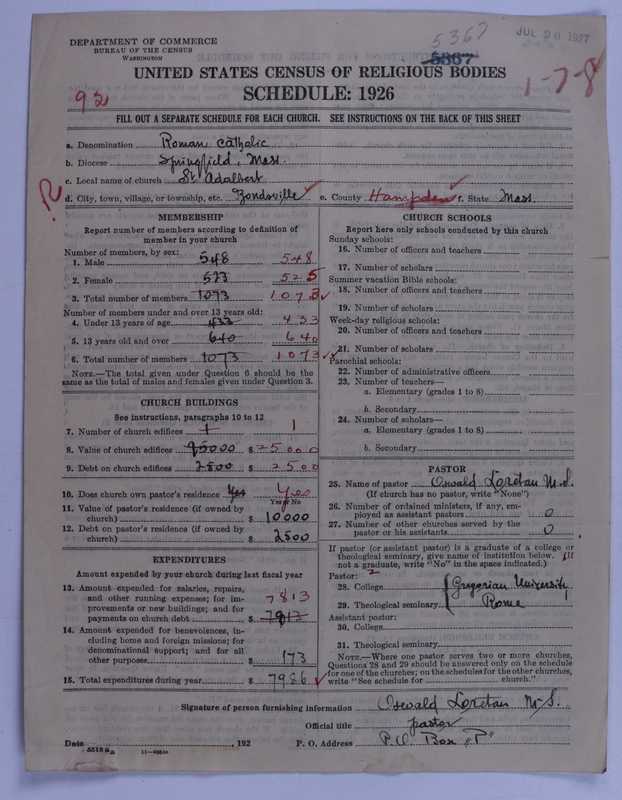 DEPARTMENT OF COMMERCE
BUREAU OF THE CENSUS
WASHINGTON
5367
5367
JUL 26 1927
1-7-8
UNITED STATES CENSUS OF RELIGIOUS BODIES
SCHEDULE: 1926
92
FILL OUT A SEPARATE SCHEDULE FOR EACH CHURCH. SEE INSTRUCTIONS ON THE BACK OF THIS SHEET
a. Denomination Roman Catholic
b. Diocese Springfield, Mass.
c. Local name of church St. Adalbert
d. City, town, village, or township, etc. Bondsville e. County Hampden f. State Mass.
MEMBERSHIP
Report number of members according to definition of
member in your church
Number of members, by sex:
1. Male 548 548
2. Female 523 525
3. Total number of members 1073 1073
Number of members under and over 13 years old:
4. Under 13 years of age 433 433
5. 13 years old and over 640 640
6. Total number of members 1073 1073
NOTE.—The total given under Question 6 should be the
same as the total of males and females given under Question 3.
CHURCH BUILDINGS
See instructions, paragraphs 10 to 12
7. Number of church edifices 1 1
8. Value of church edifices $25000
9. Debt on church edifices 2500 $2500
10. Does church own pastor's residence Yes Yes
Yes or No
11. Value of pastor's residence (if owned by
church) $10000
12. Debt on pastor's residence (if owned by
church) $2500
EXPENDITURES
Amount expended by your church during last fiscal year
13. Amount expended for salaries, repairs,
and other running expenses; for im-
provements or new buildings; and for
payments on church debt $7813 7813
14. Amount expended for benevolences, in-
cluding home and foreign missions; for
denominational support; and for all
other purposes $173
15. Total expenditures during year $7986
CHURCH SCHOOLS
Report here only schools conducted by this church
Sunday schools:
16. Number of officers and teachers
17. Number of scholars
Summer vacation Bible schools:
18. Number of officers and teachers
19. Number of scholars
Week-day religious schools:
20. Number of officers and teachers
21. Number of scholars
Parochial schools:
22. Number of administrative officers
23. Number of teachers—
a. Elementary (grades 1 to 8)
b. Secondary
24. Number of scholars—
a. Elementary (grades 1 to 8)
b. Secondary
PASTOR
25. Name of pastor Oswald Loretan M.S.
(If church has no pastor, write "None")
26. Number of ordained ministers, if any, em-
ployed as assistant pastors 0
27. Number of other churches served by the
pastor or his assistants 0
If pastor (or assistant pastor) is a graduate of a college or
theological seminary, give name of institution below. (If
not a graduate, write "No" in the space indicated.)
Pastor:
28. College Gregorian University
29. Theological seminary Rome
Assistant pastor:
30. College
31. Theological seminary
NOTE.—Where one pastor serves two or more churches,
Questions 28 and 29 should be answered only on the schedule
for one of the churches; on the schedules for the other churches,
write "See schedule for church."
Signature of person furnishing information Oswald Loretan M.S.
Official title pastor
Date , 192 P. O. Address P.O. Box "P"
5518